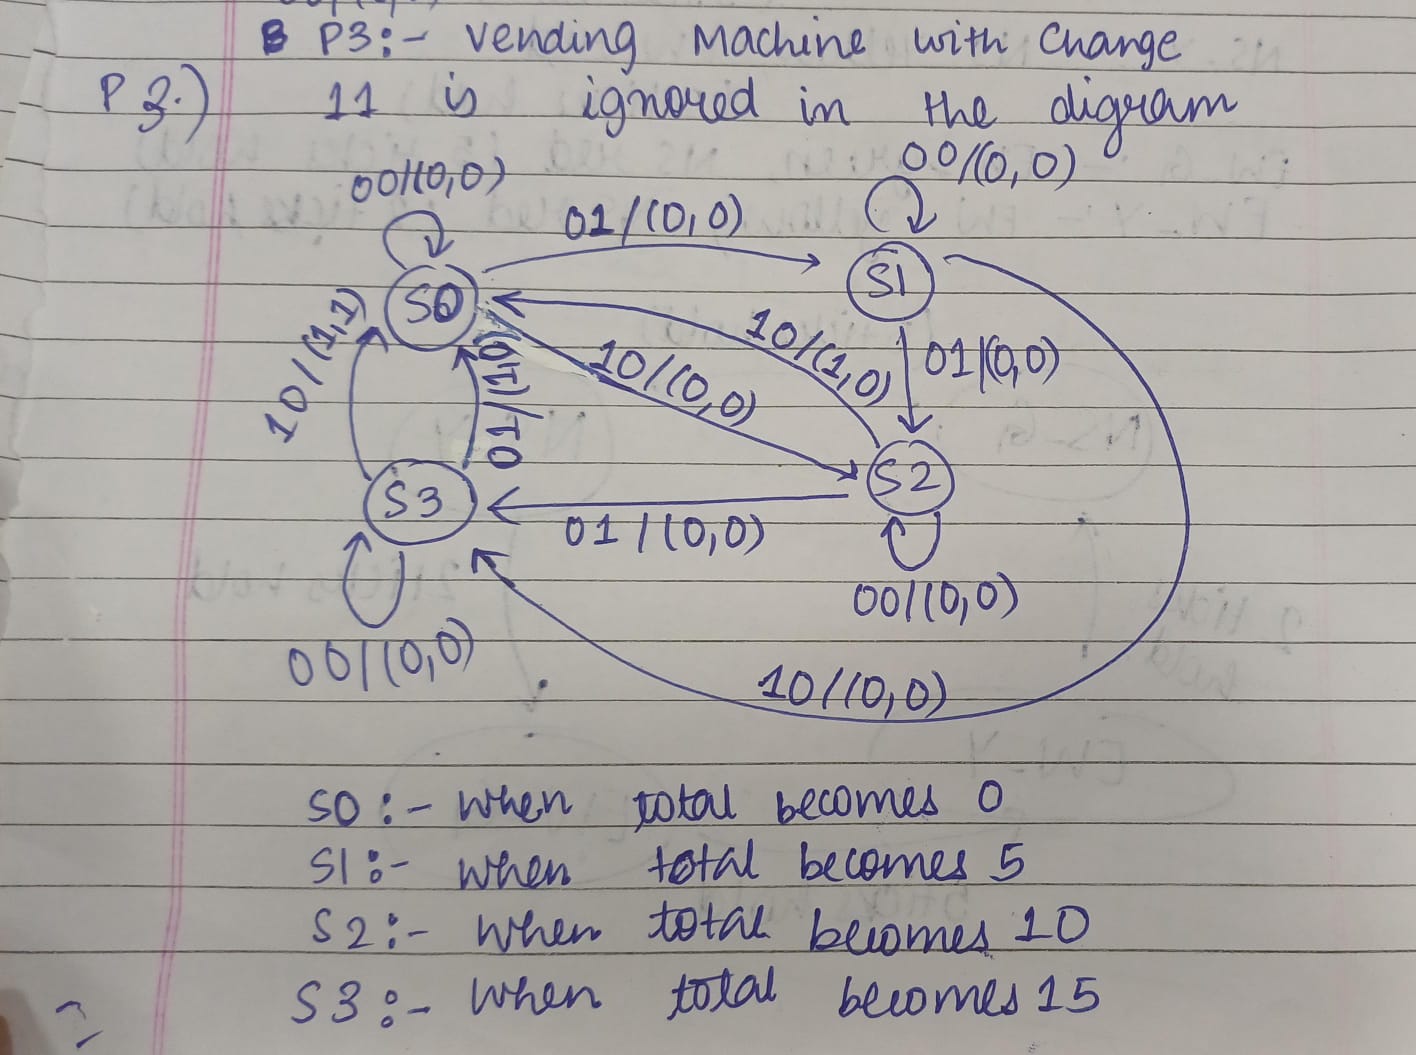 B P3:- Vending Machine with Change
P 3.) 11 is ignored in the digram
00/(0,0)
00/(0,0)
01/(0,0)
S0
S1
10/(1,1)
01/(1,0)
10/(0,0)
10/(1,0)
01/(0,0)
S3
S2
01/(0,0)
00/(0,0)
00/(0,0)
10/(0,0)
S0:- when total becomes 0
S1:- when total becomes 5
S2:- when total becomes 10
S3:- when total becomes 15